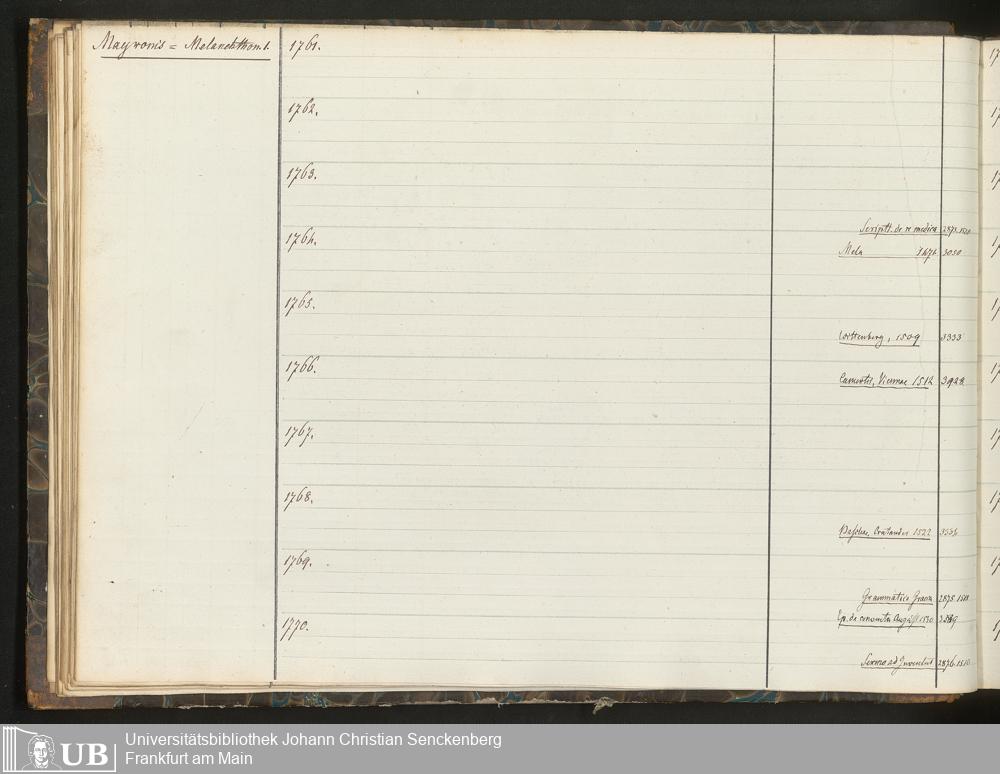 Mayronis = Melanchthon. 1.
1761.
1762.
1763.
Scriptt. de re medica 2873.
1764.
Mela 3050
1765.
Wittenberg, 1509 3333
1766.
Camertis, Viennae 1512
1767.
1768.
Basileae, Cratander 1522
1769.
Grammatica Graeca 2875.
1770.
Ep. de conventu August 1530
Sermo ad Juventut 2876.
UB
Universitätsbibliothek Johann Christian Senckenberg
Frankfurt am Main